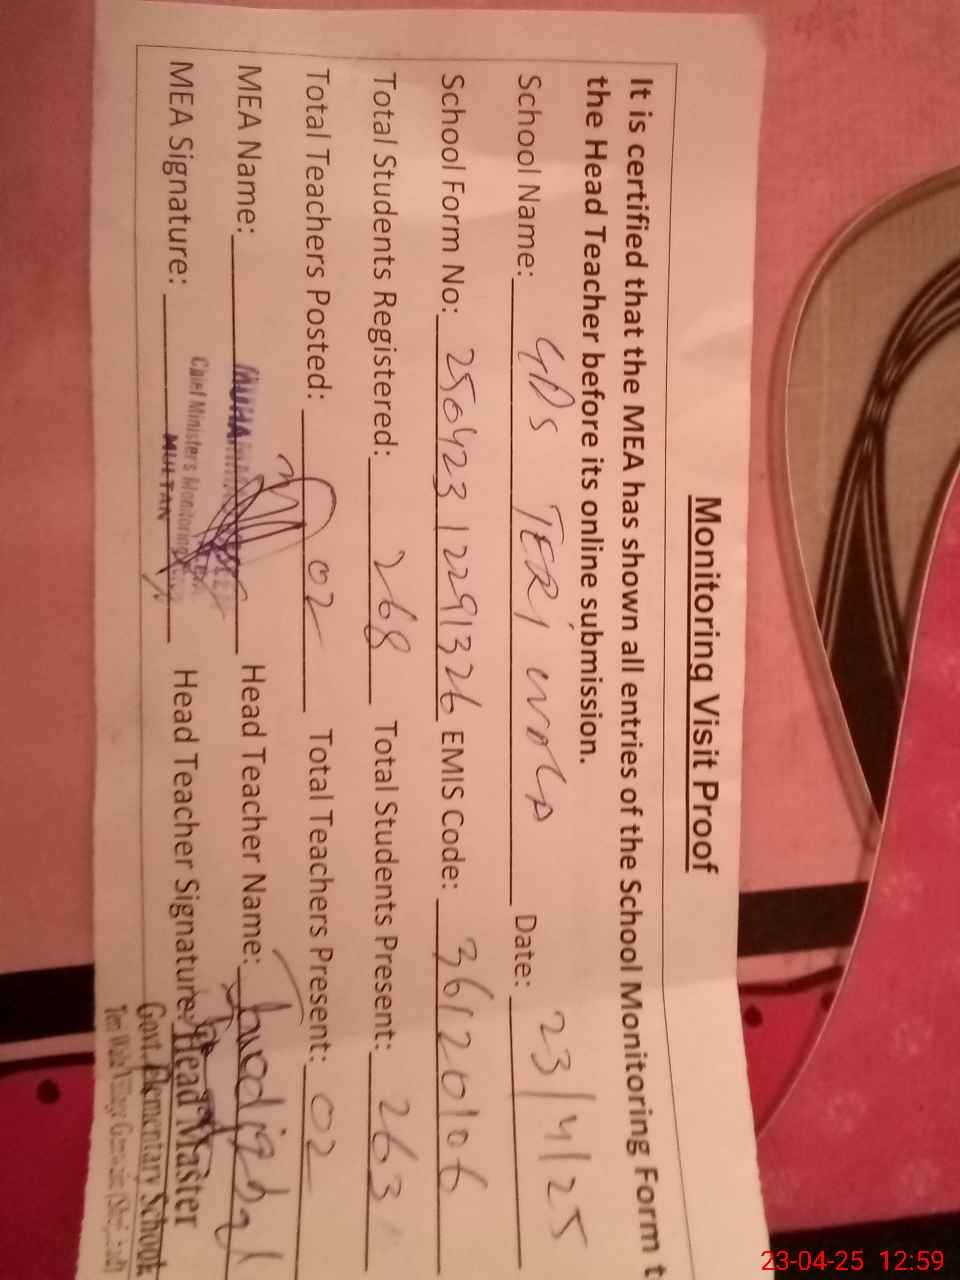 Monitoring Visit Proof
It is certified that the MEA has shown all entries of the School Monitoring Form t
the Head Teacher before its online submission.
School Name: GPS TERI WALA Date: 23/4/25
School Form No: 250423 12291326 EMIS Code: 36120106
Total Students Registered: 268 Total Students Present: 263
Total Teachers Posted: 02 Total Teachers Present: 02
MEA Name: Head Teacher Name:
Chief Minister's Monitoring
MEA Signature: MULTAN Head Teacher Signature: Head Master
Govt. Elementary School
23-04-25 12:59